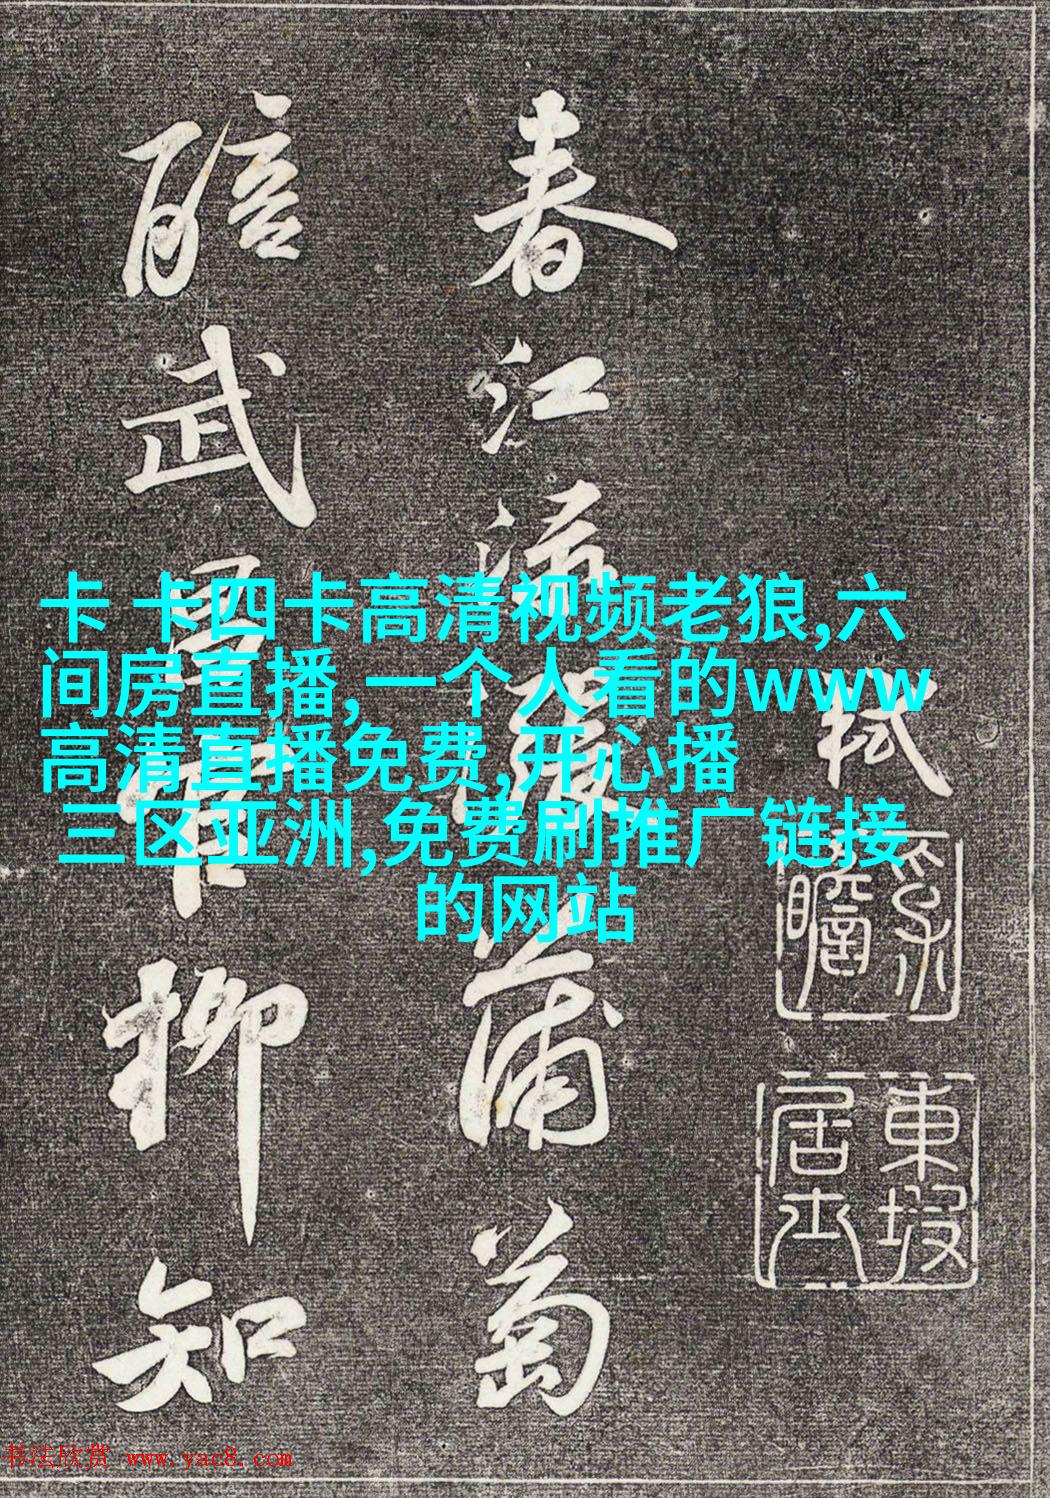 卡 卡四卡高清视频老狼,六
间房直播,一个人看的www
高清直播免费,开心播
三区亚洲,免费刷推广链接
的网站
春江渌涨蒲萄
醅武昌官柳知
軾
子瞻
東坡居士
书法欣赏 www.yac8.com